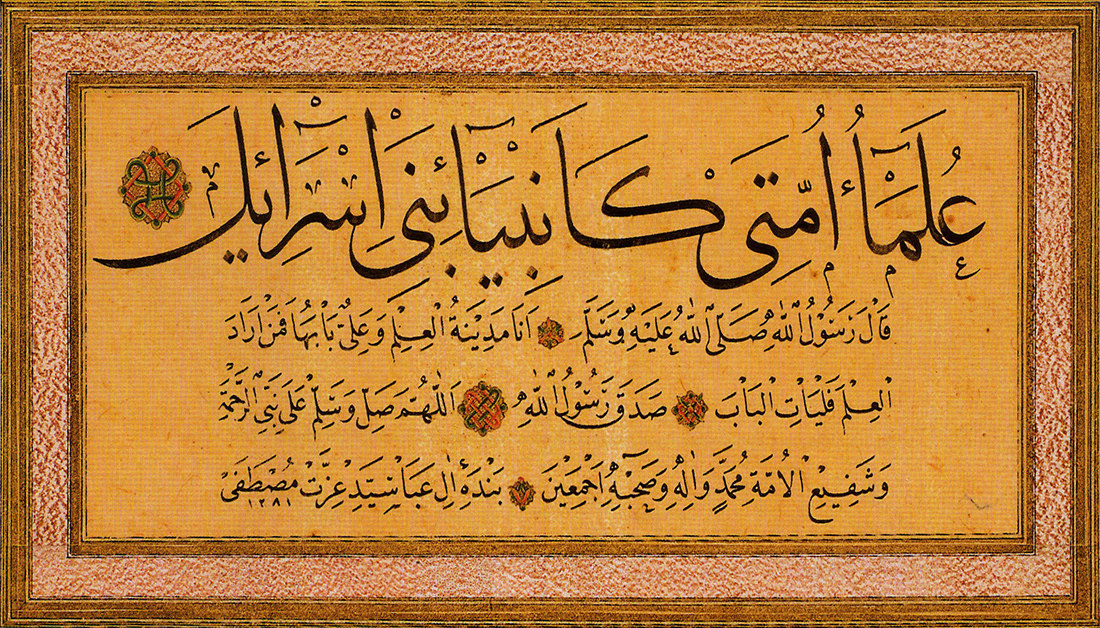 عُلَمَاءُ اُمَّتِى كَاَنْبِيَائِ بَنِى اِسْرَائِيلَ
قَالَ رَسُولُ اللّٰهِ صَلَّى اللّٰهُ عَلَيْهِ وَسَلَّمَ اَنَا مَدِينَةُ الْعِلْمِ وَعَلِىٌّ بَابُهَا فَمَنْ اَرَادَ
الْعِلْمَ فَلْيَاْتِ الْبَابَ صَدَقَ رَسُولُ اللّٰهِ اَللّٰهُمَّ صَلِّ وَسَلِّمْ عَلٰى نَبِىِّ الرَّحْمَةِ
وَشَفِيعِ الْاُمَّةِ مُحَمَّدٍ وَاٰلِهِ وَصَحْبِهِ اَجْمَعِينَ بَنْدَهٔ اٰلِ عَبَا سَيِّدْ عِزَّتْ مُصْطَفَى
١٢٨١